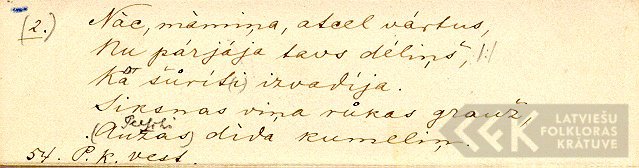 (2.) Nāc, māmiņa, atcel vārtus,
Nu pārjāja tavs dēliņš, |:|
Kā šūrit(i) izvadija.
Siksnas viņa rūkas grauž,
(Auzās) dida kumeliņ.
54. P. k. vest.
LATVIEŠU
FOLKLORAS
KRĀTUVE